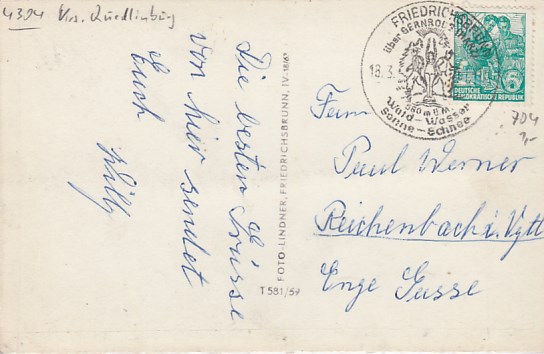 4304 Krs. Quedlinburg
Die besten Grüsse
von hier sendet
Euch
Willy
FOTO-LINDNER, FRIEDRICHSBRUNN, IV-18/61
T 581/59
FRIEDRICHSBRUNN
über GERNRODE (HARZ)
18.3.
580 m ü. M.
Wald - Wasser
Sonne - Schnee
DEUTSCHE
DEMOKRATISCHE REPUBLIK
Fam
Paul Werner
Reichenbach i. Vgtl
Enge Gasse
704